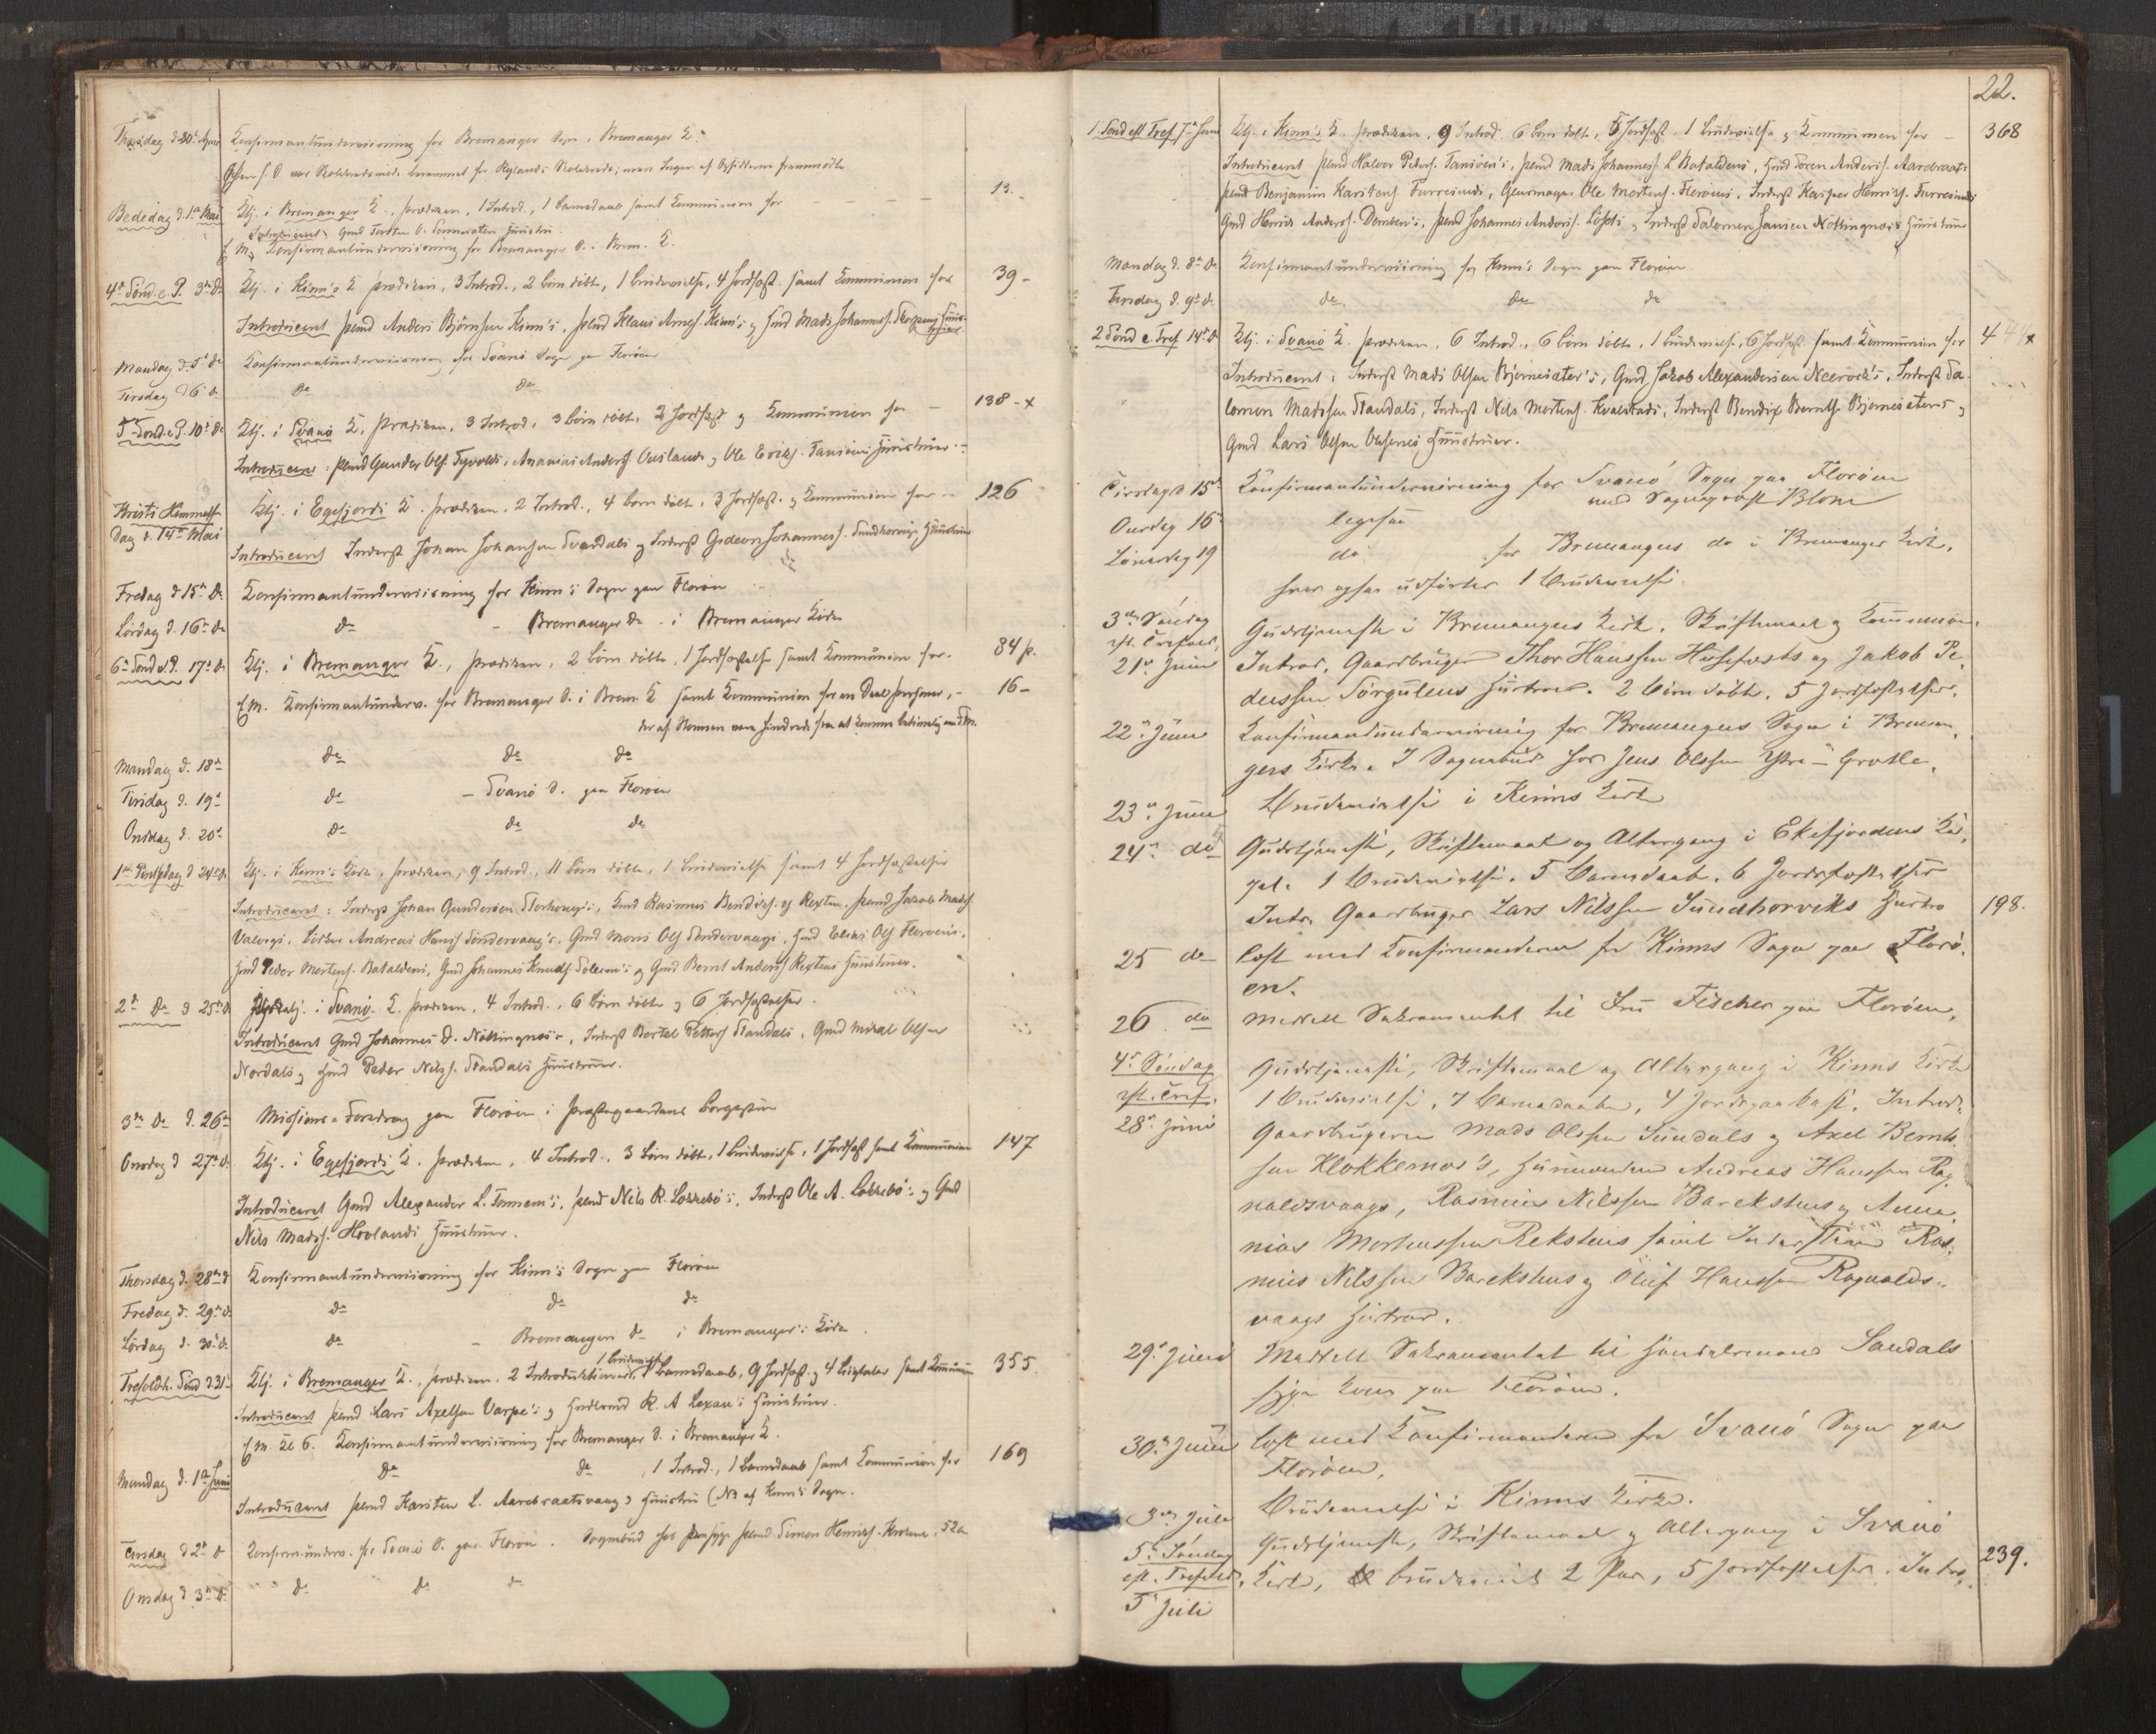 Thorsdag d. 30te April Konfirmantundervisning for Bremanger Sogn i Bremanger K.
Bededag d. 1te Mai Gtj. i Bremanger K., prædiken, 1 Introd., 1 Barnedaab samt Communion for 13.
Introduceret Gmd
E M. Konfirmantundervisning for Bremanger S. i Brem. K.
4de Sønd. e. P. 3die Do Gtj. i Kinn's K prædiken, 3 Introd., 2 børn døbte, 1 brudevielse, 4 Jordfæst. samt Communion for 39 -
Introduceret plmd Anders Bjørnsen Kinn's, plmd Klaus Arnes. Kinn's og Hmd Mads Johanness. Skorpens Huustruer.
Mandag d. 5te do Konfirmantundervisning for Svanø Sogn paa Florøen
Tirsdag d 6te do do do
5te Sønd. e. P. 10de do Gtj. i Svanø K. prædiken, 3 Introd., 3 børn døbte, 2 Jordfæst og Communion for 138 - x
Introduceret: plmd Gunder Ols. Tyvolds, Ananias Anders. Ouslands og Ole Eriks. Tansøens Huustruer.
Kristi Himmelf. Gtj. i Egefjords K. prædiken, 2 Introd., 4 børn døbte, 3 Jordfæst. og Communion for 126
Dag d. 14de Mai Introduceret Inderst Johan Johansen Svardals og Inderst Gideon Johanness. Sundhorvigs Huustruer
Fredag d 15de Do Konfirmantundervisning for Kinn's Sogn paa Florøen
Lørdag d. 16de do do - Bremanger do i Bremanger Kirke
6te Sønd e P. 17de do Gtj. i Bremanger K., prædiken, 2 børn døbte, 1 Jordfæstelse samt Communion for 84 p.
E M. Konfirmantunderv. for Bremanger S. i Brem. K samt Communion for en Deel Personer, - 16 -
der af Stormen vare hindrede fra at komme betimelig om FM.
Mandag d. 18de do do do
Tirsdag d. 19de do - Svanø S. paa Florøen
Onsdag d. 20de do do do
1ste Pintsdag d 24de do Gtj. i Kinn's Kirke, prædiken, 9 Introd., 11 børn døbte, 1 brudevielse samt 4 Jordfæstelser
Introduceret: Inderst Johan Gundersen Storhoug's, Gmd Rasmus Bendixs. Rexten, plmd Jacob Mads.
Valvigs, Andreas Hans. Søndervaag's, Gmd Mons Ols. Søndervaags, Hmd Elias Ols. Florøens,
Hmd Peder Mortens. Bataldens, Gmd Johannes Knuds. Solems og Gmd Bernt Anders. Rextens Huustruer.
2den Do d 25de do i Svanø K. prædiken, 4 Introd., 6 børn døbte og 6 Jordfæstelser.
Introduceret Gmd Johannes D. Nøttingnæs's, Inderst Bertel Petters. Standals, Gmd Mikal Olsen
Nordals og Hmd Peder Nils. Standals Huustruer.
3die Do d. 26de Missions-Foredrag paa Florøen i Præstegaardens Borgestue
Onsdag d 27de do Gtj. i Egefjords K. prædiken, 4 Introd., 3 børn døbte, 1 brudevielse, 1 Jordfæst samt Communion 147
Introduceret Gmd Alexander L. Tonnem's, plmd Nils R. Løkkebø's, Inderst Ole A. Løkkebø's og Gmd
Nils Mads. Hovlands Huustruer.
Thorsdag d. 28de do Konfirmantundervisning for Kinn's Sogn paa Florøen
Fredag d. 29de do do do do
Lørdag d. 30te do do - Bremangers do i Bremanger's Kirke
Trefoldh. Sønd d 31te Gtj. i Bremanger K., prædiken, 2 Introduktioner, 1 brudevielse, 1 Barnedaab, 9 Jordfæst. og 4 Liigtaler samt Communion 355.
Introduceret plmd Lars Axelsen Varpe's og R. A Lexau's Huustruer.
E M. Kl 6. Konfirmantundervisning for Bremanger S. i Bremanger K.
Mandag d. 1ste Juni do do, 1 Introd., 1 Barnedaab samt Communion for 169
Introduceret plmd Karsten L. Aarebraatsvaags Huustru (NB af Kinn's Sogn.
Tirsdag d 2den do Konfirm.underv. for Svanø S. paa Florøen. Sognebud hos plmd Simon Henriks. , 52 a
Onsdag d 3die do do do do
22.
1 Sønd eft Tref. 7de Juni Gtj. i Kinn's K. prædiken, 9 Introd. 6 børn døbte, 5 Jordfæst. 1 brudevielse og Communion for 368
Introduceret plmd Halvor Peders. Tansøen's, plmd Mads Johanness. L Bataldens, Hmd Søren Anders. Aarebraats
plmd Benjamin Karstens. Furresunds, Ole Mortens. Florøens, Inderst Kasper Henriks. Furresunds
Gmd Henrik Anders. Domben's, plmd Johannes Anders. og Inderst Salomon Jansen Nøttingnæs's Huustruer
Mandag d. 8de do Konfirmantundervisning for Kinn's Sogn paa Florøen
Tirsdag d. 9de do do do do
2 Sønd e. Tref 14de do Gtj. i Svanø K. prædiken, 6 Introd., 6 børn døbte, 1 brudevielse, 6 Jordfæst samt Communion for 4
Introduceret: Inderst Mads Olsen Bjørnesæter's, Gmd Jakob Alexandersen Neervik's, Inderst Sa-
lomon Madssen Standals, Inderst Nils Mortens. Kvalstads, Inderst Bendix Bernts. Bjørnesæters og
Gmd Lars Olsen Huustruer.
Tirsdag d 15de Konfirmandundervisning for Svanø Sogn paa Florøen
med Sogneprest Blom
Onsdag 16de ligesaa
Løverdag 19 do for Bremangers do i Bremanger Kirke,
hvor ogsaa udførtes 1 Brudevielse.
3die Søndag
eft. Trefold. Gudstjeneste i Bremangers Kirke. Skriftemaal og Communion.
21de Juni Introd. Gaardbruger Thor Hanssen Husefæsts og Jakob Pe-
derssen Førgulens Hustruer. 2 Børn døbte. 5 Jordfæstelser.
22de Juni Konfirmandundervisning for Bremangers Sogn i Breman-
gers Kirke. I Sognebud hos Jens Olssen Ytre-Grotle.
23de Juni Brudevielse i Kinns Kirke
24de do Gudstjeneste, Skriftemaal og Altergang i Eikefjordens Ka-
pel. 1 Brudevielse. 5 Barnedaab. 6 Jordfæstelser
Intr. Gaardbruger Lars Nilssen Sundhorviks Hustru 198.
25 do Læst med Konfirmanderne fra Kinns Sogn paa Florø-
en.
26 do Meddelt Sakramentet til Fru Fischer paa Florøen.
4de Søndag
eft. Tref. Gudstjeneste, Skriftemaal og Altergang i Kinns Kirke
28de Juni 1 Brudevielse, 7 Barnedaabe, 4 Jordpaakast. Introd.
Gaardbrugerne Mads Olssen Sundals og Axel Bernt-
sen Klokkernes's, Husmændene Andreas Hanssen Rag-
naldsvaags, Rasmus Nilssen Barekstens og Ana-
nias Mortenssen Rekstens samt Inderst Ras-
mus Nilssen Barekstens og Oluf Hanssen Ragnalds-
vaags Hustruer.
29de Juni Meddelt Sakramentet til Handelsmand Sandals
syge Kone paa Florøen.
30te Juni Læst med Konfirmanderne fra Svanø Sogn paa
Florøen.
3die Juli Brudevielse i Kinns Kirke.
5te Søndag
eft. Trefold. Gudstjeneste, Skriftemaal og Altergang i Svanø
5 Juli Kirke, brudeviet 2 Par, 5 Jordfæstelser. Intro- 239.